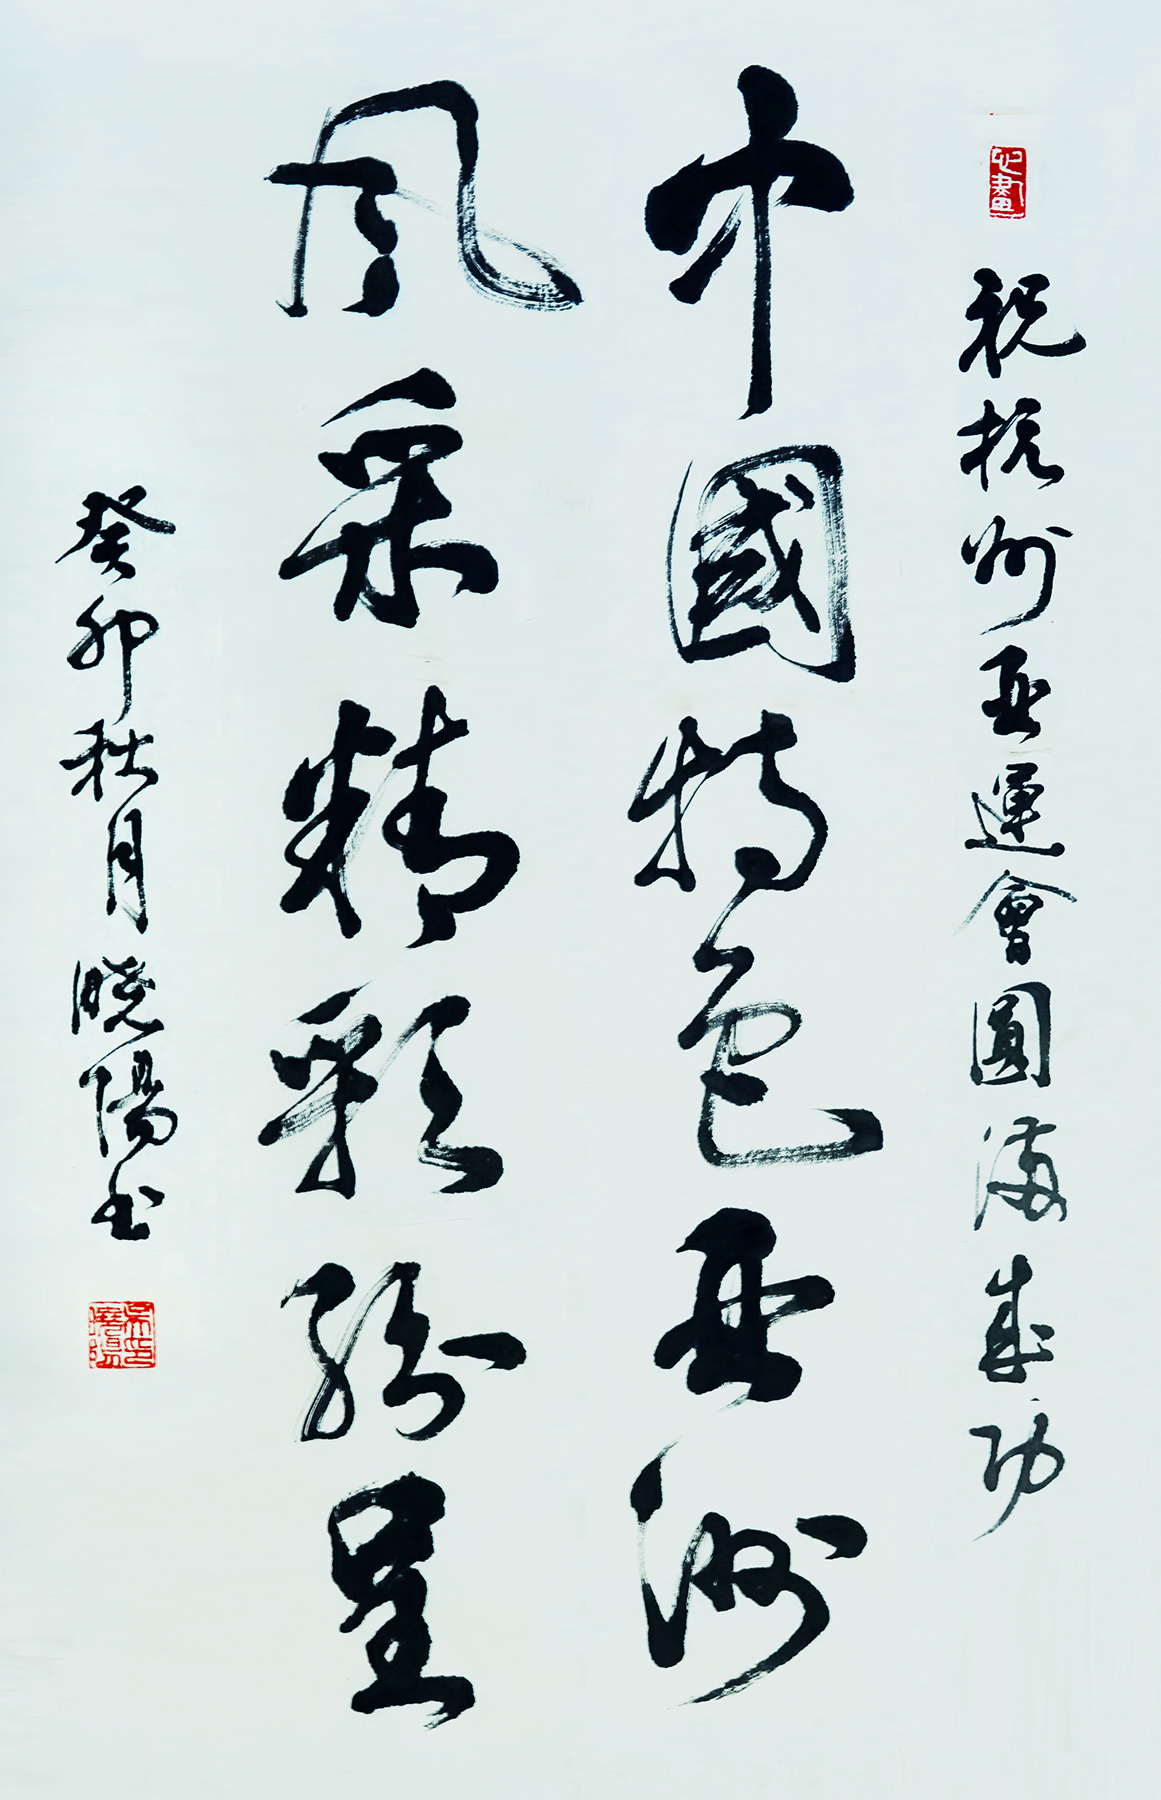 心畫
祝杭州亚運會圓满成功
中國特色亚洲
風采精彩紛呈
癸卯秋月曉陽书